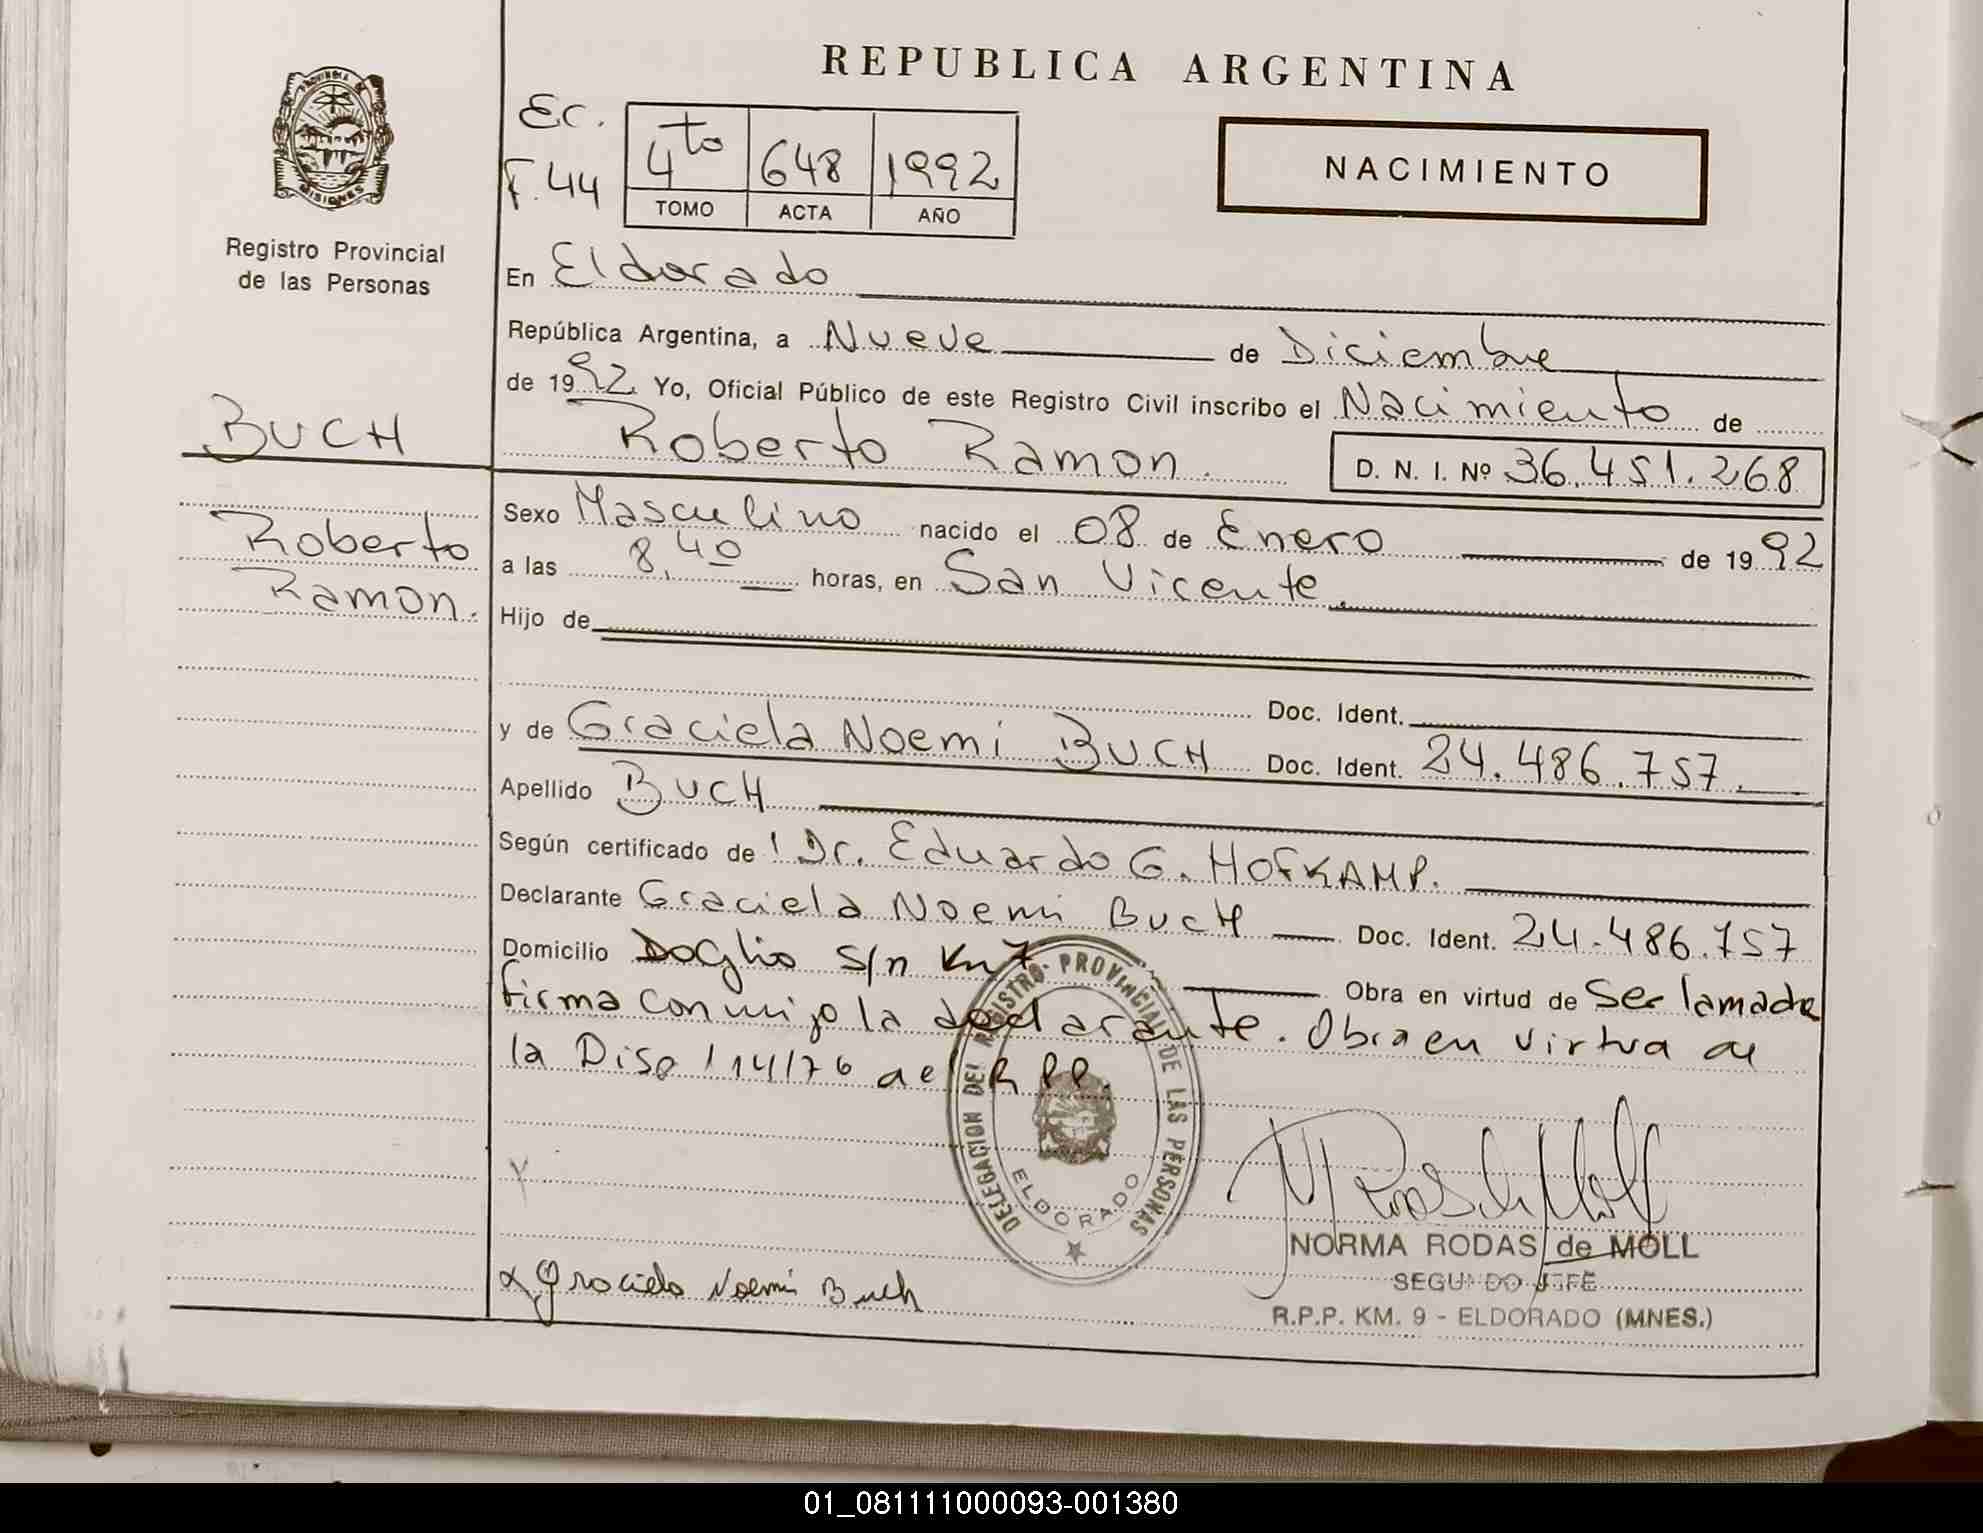 REPUBLICA ARGENTINA
PROVINCIA DE
MISIONES
Registro Provincial
de las Personas
Ec.
F. 44
4to 648 1992
TOMO ACTA AÑO
NACIMIENTO
En Eldorado
República Argentina, a Nueve de Diciembre
de 1992 Yo, Oficial Público de este Registro Civil inscribo el Nacimiento de
BUCH
Roberto Ramon. D. N. I. Nº 36.451.268
Roberto
Ramon.
Sexo Masculino nacido el 08 de Enero de 1992
a las 8,40 horas, en San Vicente.
Hijo de
Doc. Ident.
y de Graciela Noemi BUCH Doc. Ident. 24.486.757.
Apellido BUCH
Según certificado de Dr. Eduardo G. HOFKAMP.
Declarante Graciela Noemi BUCH Doc. Ident. 24.486.757
Domicilio Doglio s/n Km 7 Obra en virtud de Ser la madre
firma conmigo la declarante. Obra en virtud de
la Disp 114/76 del R P P.
DELEGACION DEL REGISTRO PROVINCIAL DE LAS PERSONAS
ELDORADO
NORMA RODAS de MOLL
SEGUNDO JEFE
R.P.P. KM. 9 - ELDORADO (MNES.)
x Graciela Noemi Buch
01_081111000093-001380